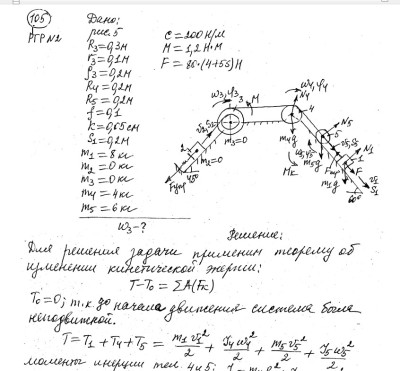 105
РГР №2
Дано:
рис. 5
R₃=0,3м
r₃=0,1м
ρ₃=0,2м
R₄=0,2м
R₅=0,2м
f=0,1
k=0,65см
S₁=0,2м
m₁=8кг
m₂=0кг
m₃=0кг
m₄=4кг
m₅=6кг
ω₃-?
c=200Н/м
M=1,2Н·м
F=80·(4+5S)Н
ω₃,φ₃
M
ω₄,φ₄
N₄
4
3
N₅
5
m₃=0
m₄g
Mк
m₅g
2
m₂=0
Fупр
45°
N₁
1
F
m₁g
60°
S₁
Решение:
Для решения задачи применим теорему об
изменении кинетической энергии:
T-T₀=ΣA(Fк)
T₀=0; т.к. до начала движения система была
неподвижной.
T=T₁+T₄+T₅= m₁v₁²/2 + J₄ω₄²/2 + m₅v₅²/2 + J₅ω₅²/2
моменты инерции тел 4 и 5: